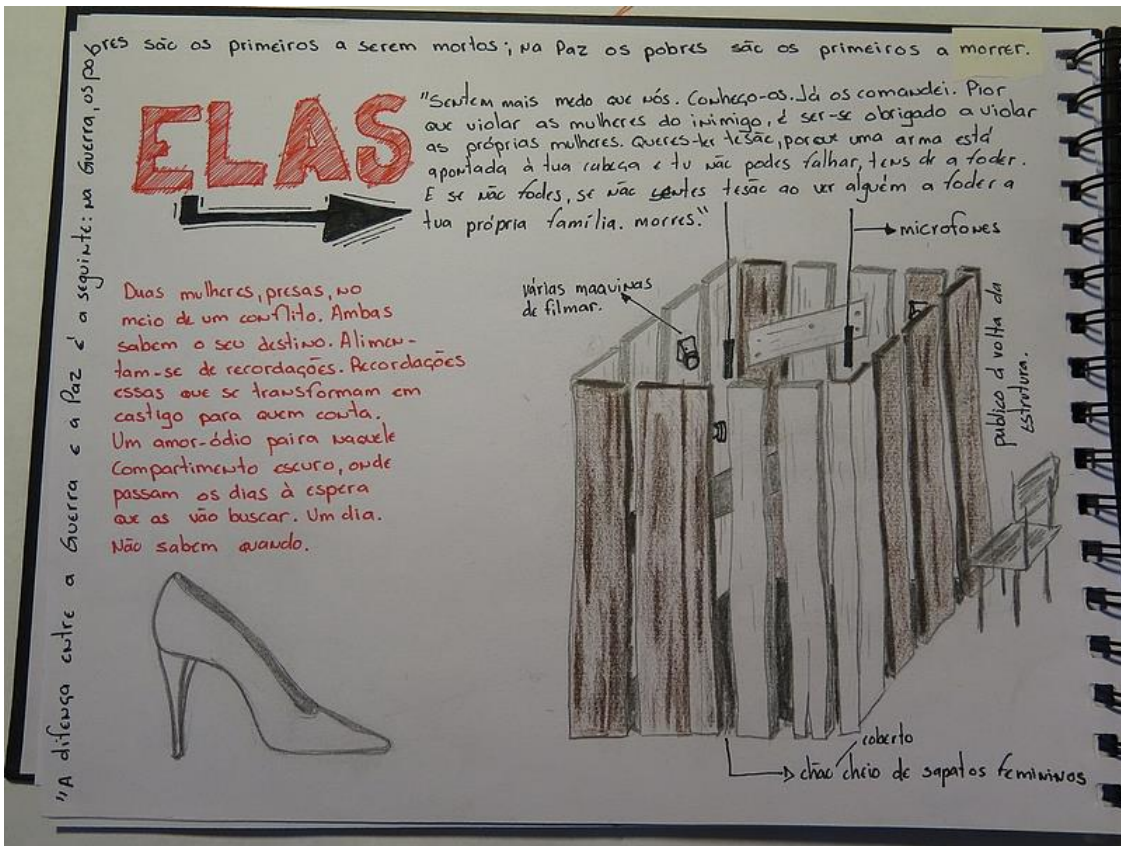 "A difença entre a Guerra e a Paz é a seguinte: na Guerra, os pobres são os primeiros a serem mortos; na Paz os pobres são os primeiros a morrer.
ELAS
"Sentem mais medo que nós. Conheço-os. Já os comandei. Pior
que violar as mulheres do inimigo, é ser-se obrigado a violar
as próprias mulheres. Queres-ter tesão, porque uma arma está
apontada à tua cabeça e tu não podes falhar, tens de a foder.
E se não fodes, se não sentes tesão ao ver alguém a foder a
tua própria família. morres."
microfones
várias maquinas
de filmar.
publico à volta da
estrutura.
Duas mulheres, presas, no
meio de um conflito. Ambas
sabem o seu destino. Alimen-
tam-se de recordações. Recordações
essas que se transformam em
castigo para quem conta.
Um amor-ódio paira naquele
compartimento escuro, onde
passam os dias à espera
que as vão buscar. Um dia.
Não sabem quando.
coberto
chão cheio de sapatos femininos